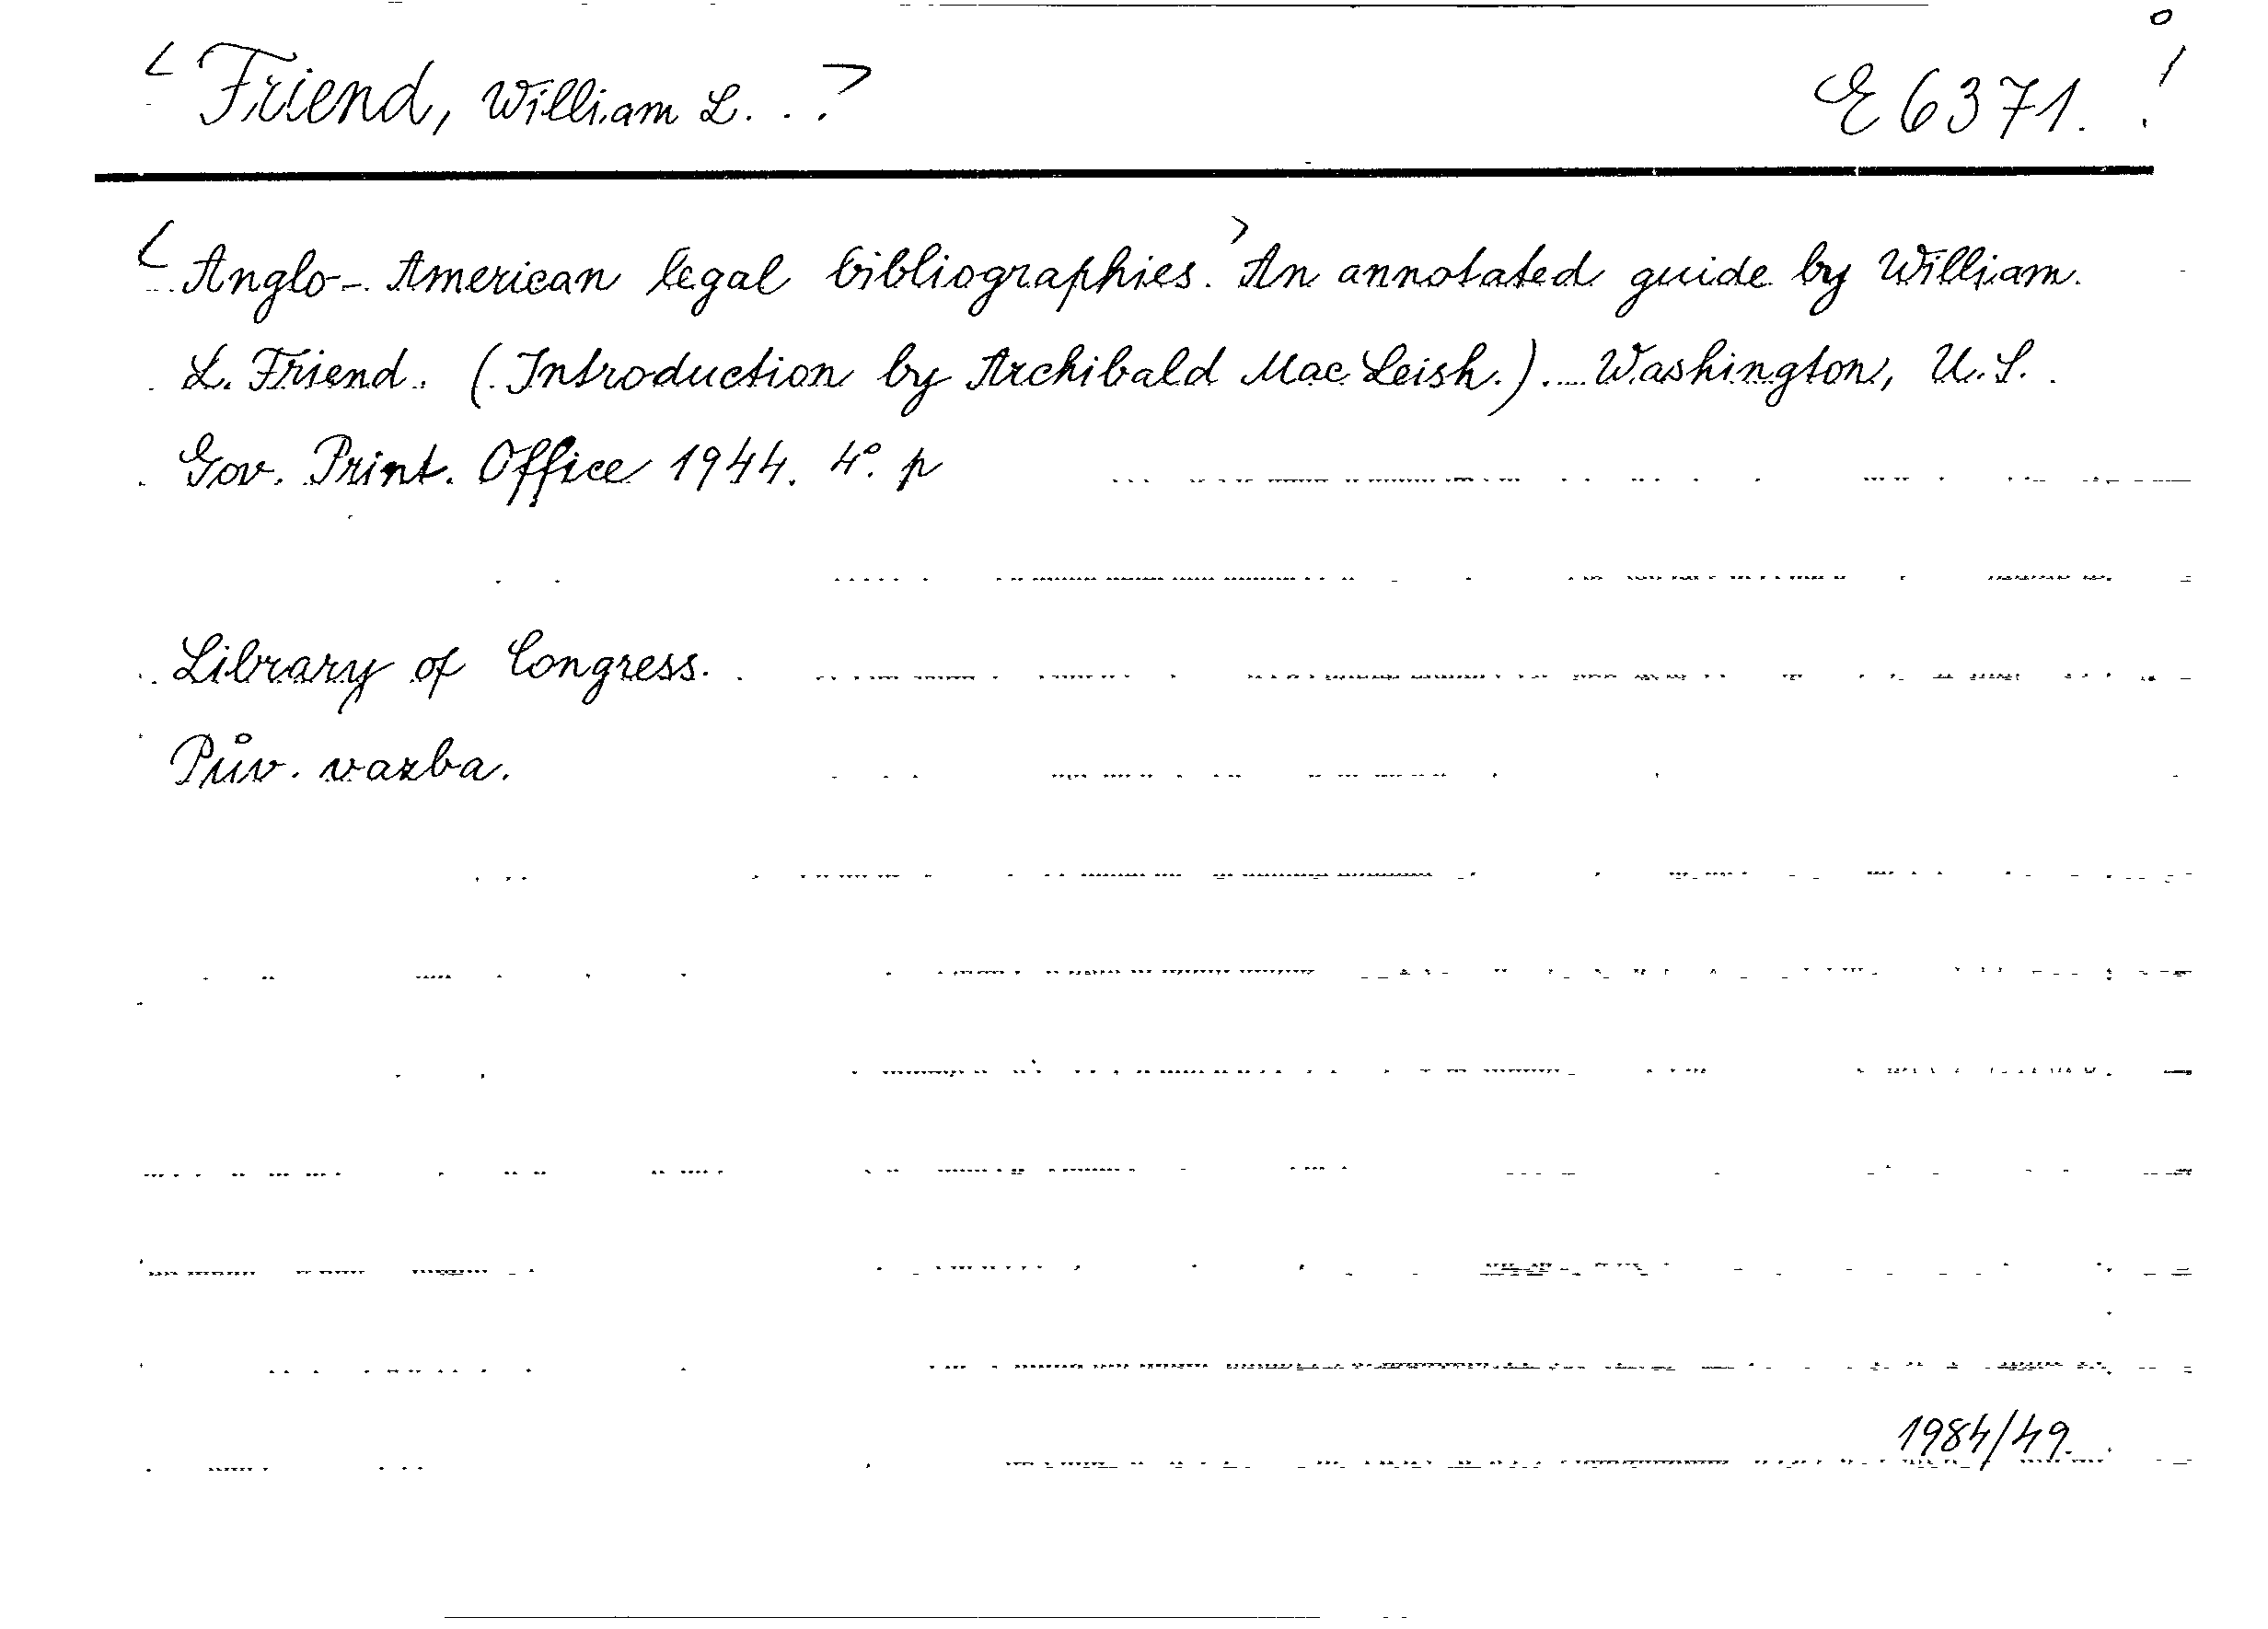 < Friend, William L. . . > E 6371. !
< Anglo-American legal bibliographies. > An annotated guide by William
L. Friend. (Introduction by Archibald Mac Leish.) Washington, U.S.
Gov. Print. Office 1944. 4°. p
Library of Congress.
Pův. vazba.
1984/49.